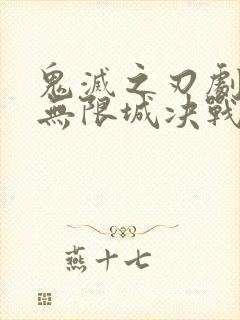 鬼滅之刃劇
無限城决戰
燕十七